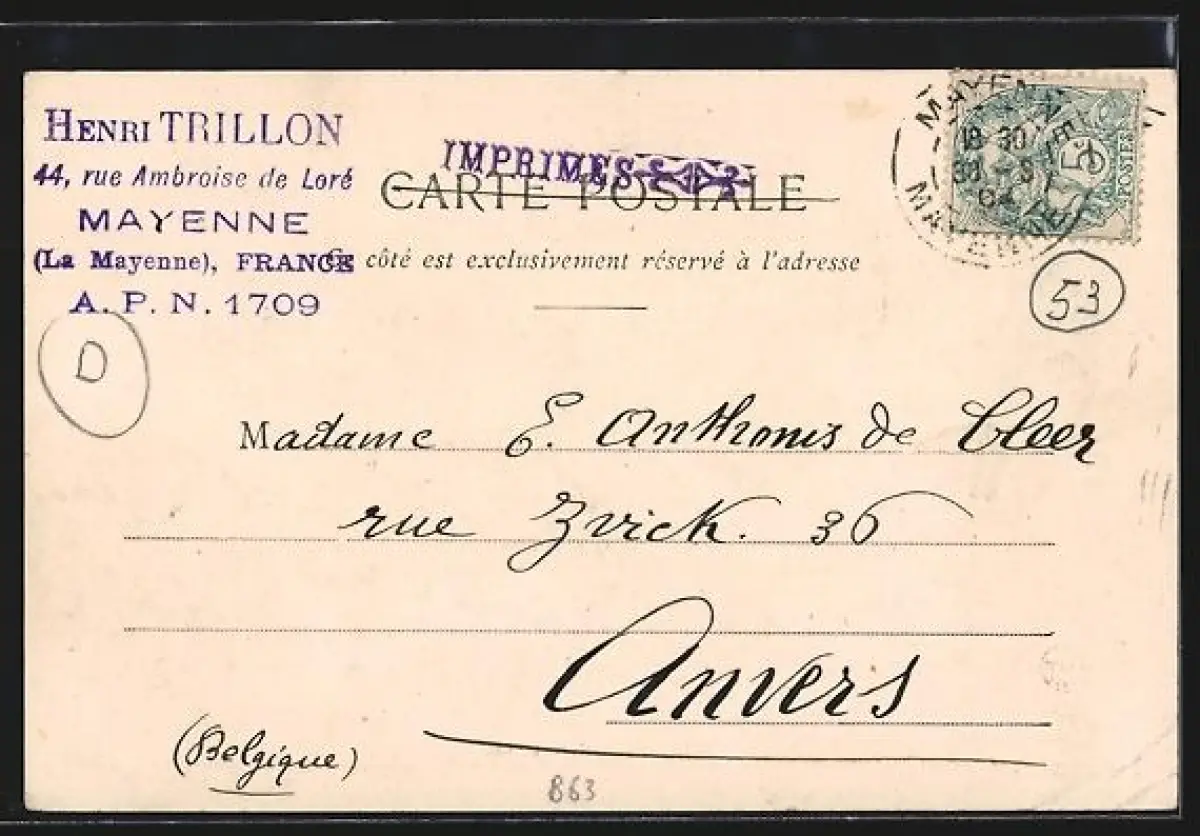 HENRI TRILLON
44, rue Ambroise de Loré
MAYENNE
(La Mayenne), FRANCE
A. P. N. 1709
IMPRIMÉS
CARTE POSTALE
Ce côté est exclusivement réservé à l'adresse
MAYENNE
18 30
MAYENNE
5c
POSTES
53
D
Madame E. Anthonis de Cleer
rue Zvick. 36
Anvers
(Belgique)
863